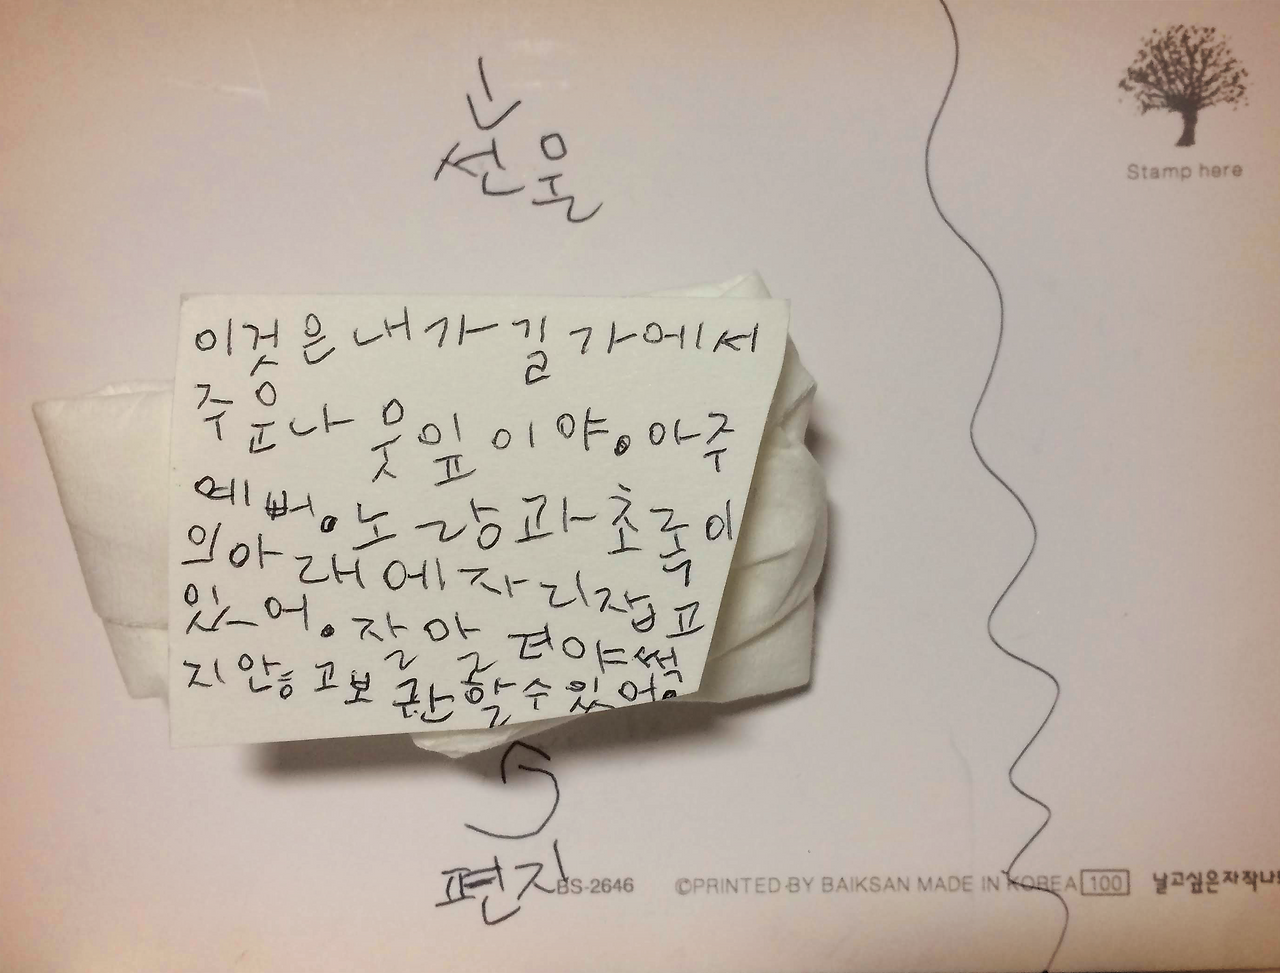 선물
Stamp here
이것은 내가 길가에서
주운 나뭇잎이야. 아주
예뻐. 노랑과 초록이
의아래에 자리잡고
있어. 잘 말려야 썩
지 않고 보관할 수 있어.
편지
BS-2646 ©PRINTED BY BAIKSAN MADE IN KOREA 100 날고싶은자작나